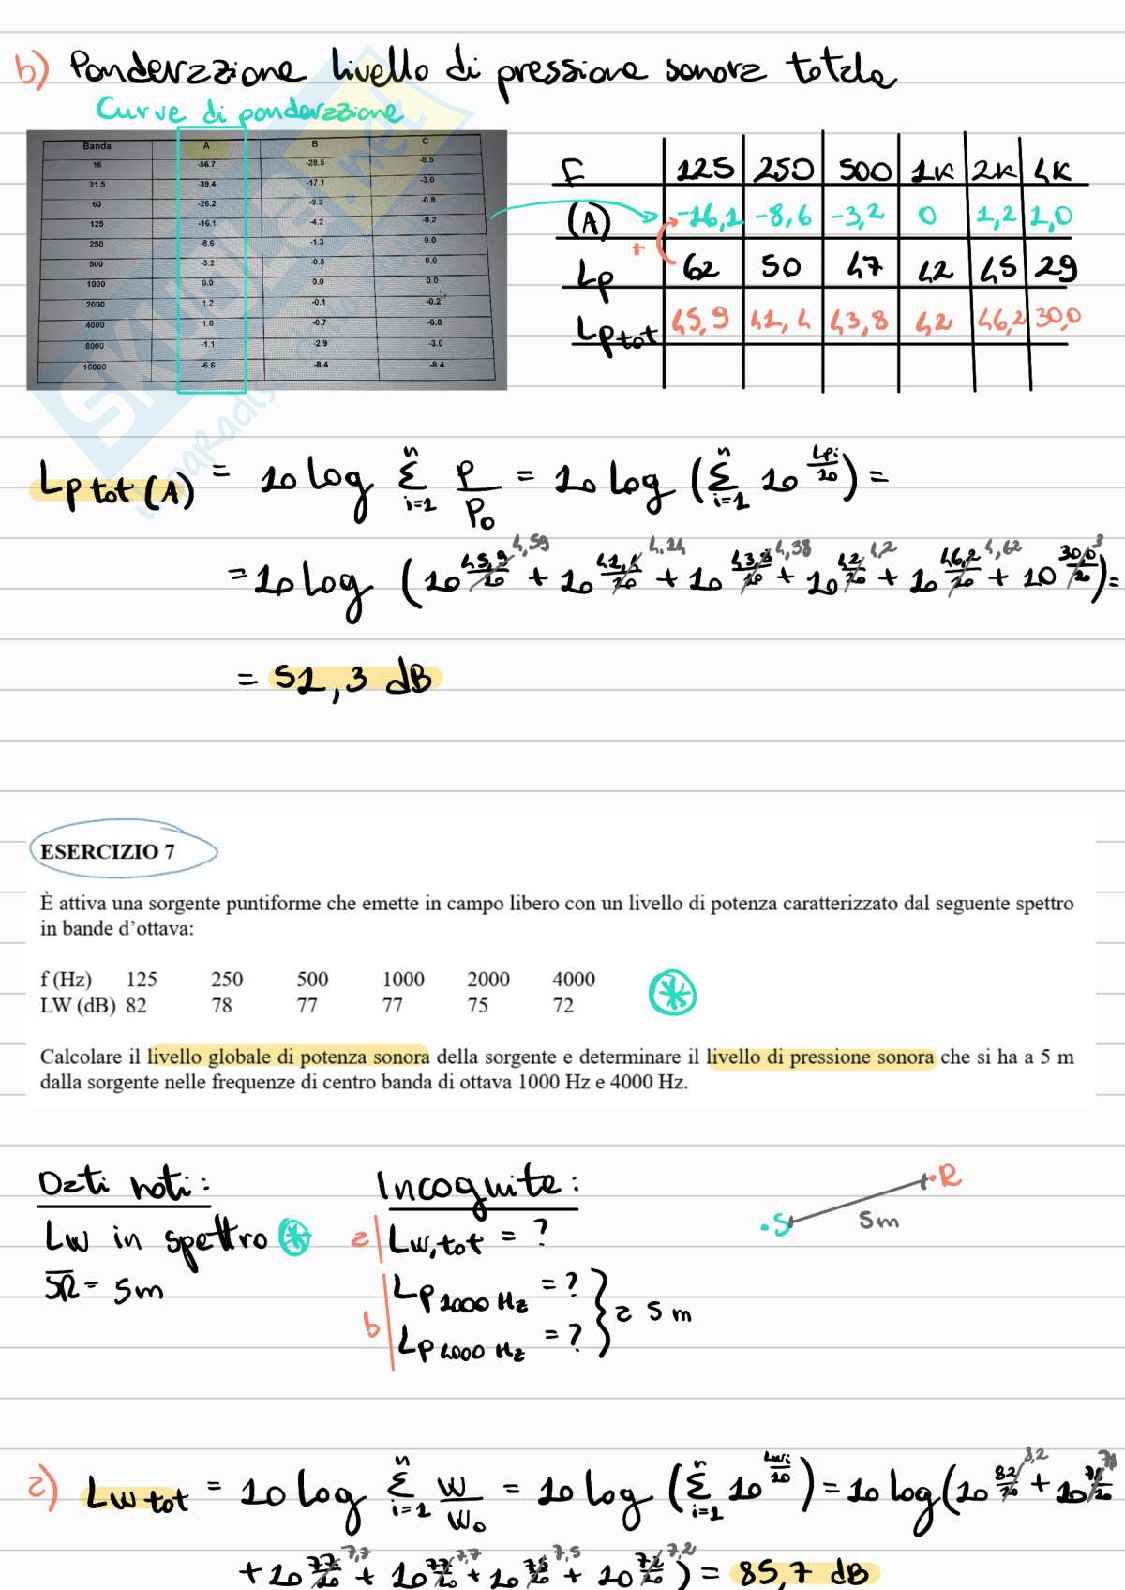 b) Ponderazione livello di pressione sonora totale
Curve di ponderazione
Banda A B C
16 -56.7 -28.5 -8.5
31.5 -39.4 -17.1 -3.0
63 -26.2 -9.3 -0.8
125 -16.1 -4.2 -0.2
250 8.6 -1.3 0.0
500 -3.2 -0.3 0.0
1000 0.0 0.0 0.0
2000 1.2 -0.1 -0.2
4000 1.0 -0.7 -0.8
8000 -1.1 -2.9 -3.0
16000 -6.6 -8.4 -8.4
F 125 250 500 1K 2K 4K
(A) -16,1 -8,6 -3,2 0 1,2 1,0
+
Lp 62 50 47 42 45 29
Lp tot 45,9 41,4 43,8 42 46,2 30,0
Lp tot (A) = 10 log Σ i=1 n P/P0 = 10 log (Σ i=1 n 10^(Lpi/10)) =
= 10 log (10^(45,9/10) 4,59 + 10^(41,4/10) 4,14 + 10^(43,8/10) 4,38 + 10^(42/10) 4,2 + 10^(46,2/10) 4,62 + 10^(30,0/10) 3) =
= 51,3 dB
ESERCIZIO 7
È attiva una sorgente puntiforme che emette in campo libero con un livello di potenza caratterizzato dal seguente spettro
in bande d'ottava:
f (Hz) 125 250 500 1000 2000 4000
LW (dB) 82 78 77 77 75 72
Calcolare il livello globale di potenza sonora della sorgente e determinare il livello di pressione sonora che si ha a 5 m
dalla sorgente nelle frequenze di centro banda di ottava 1000 Hz e 4000 Hz.
Dati noti:
Lw in spettro *
SR = 5m
Incognite:
a Lw,tot = ?
b Lp 1000 Hz = ?
Lp 4000 Hz = ?
a 5 m
S R
5m
a) Lw tot = 10 log Σ i=1 n W/W0 = 10 log (Σ i=1 n 10^(Lwi/10)) = 10 log (10^(82/10) 8,2 + 10^(78/10)
+ 10^(77/10) 7,7 + 10^(77/10) 7,7 + 10^(75/10) 7,5 + 10^(72/10) 7,2) = 85,7 dB